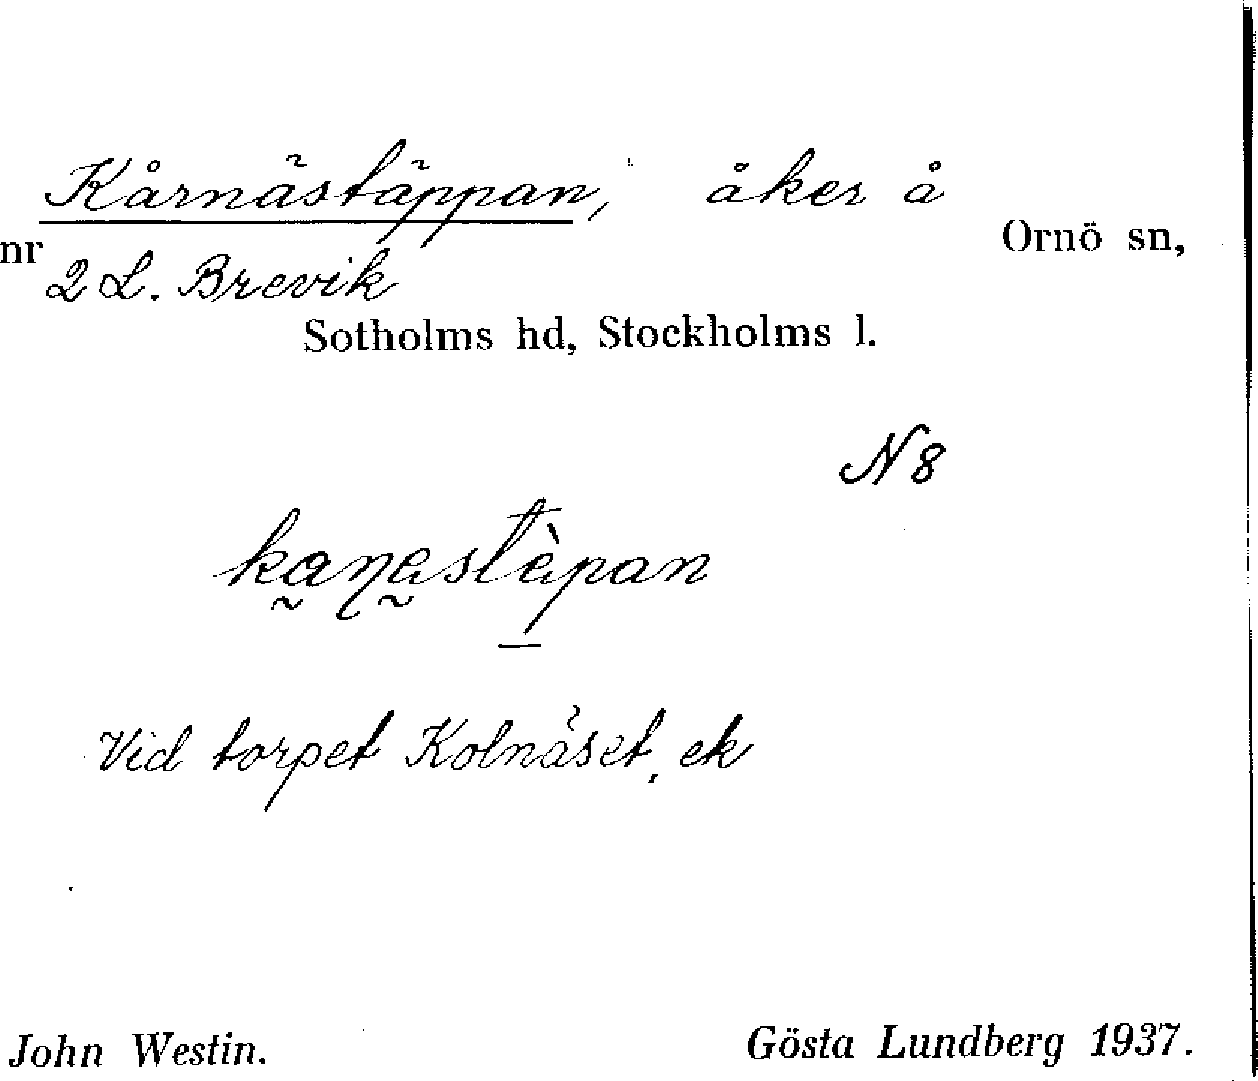 Kårnästäppan, åker å
Ornö sn,
nr 2 L. Brevik
Sotholms hd, Stockholms l.
N 8
Vid torpet Kolnäset, ek
John Westin. Gösta Lundberg 1937.